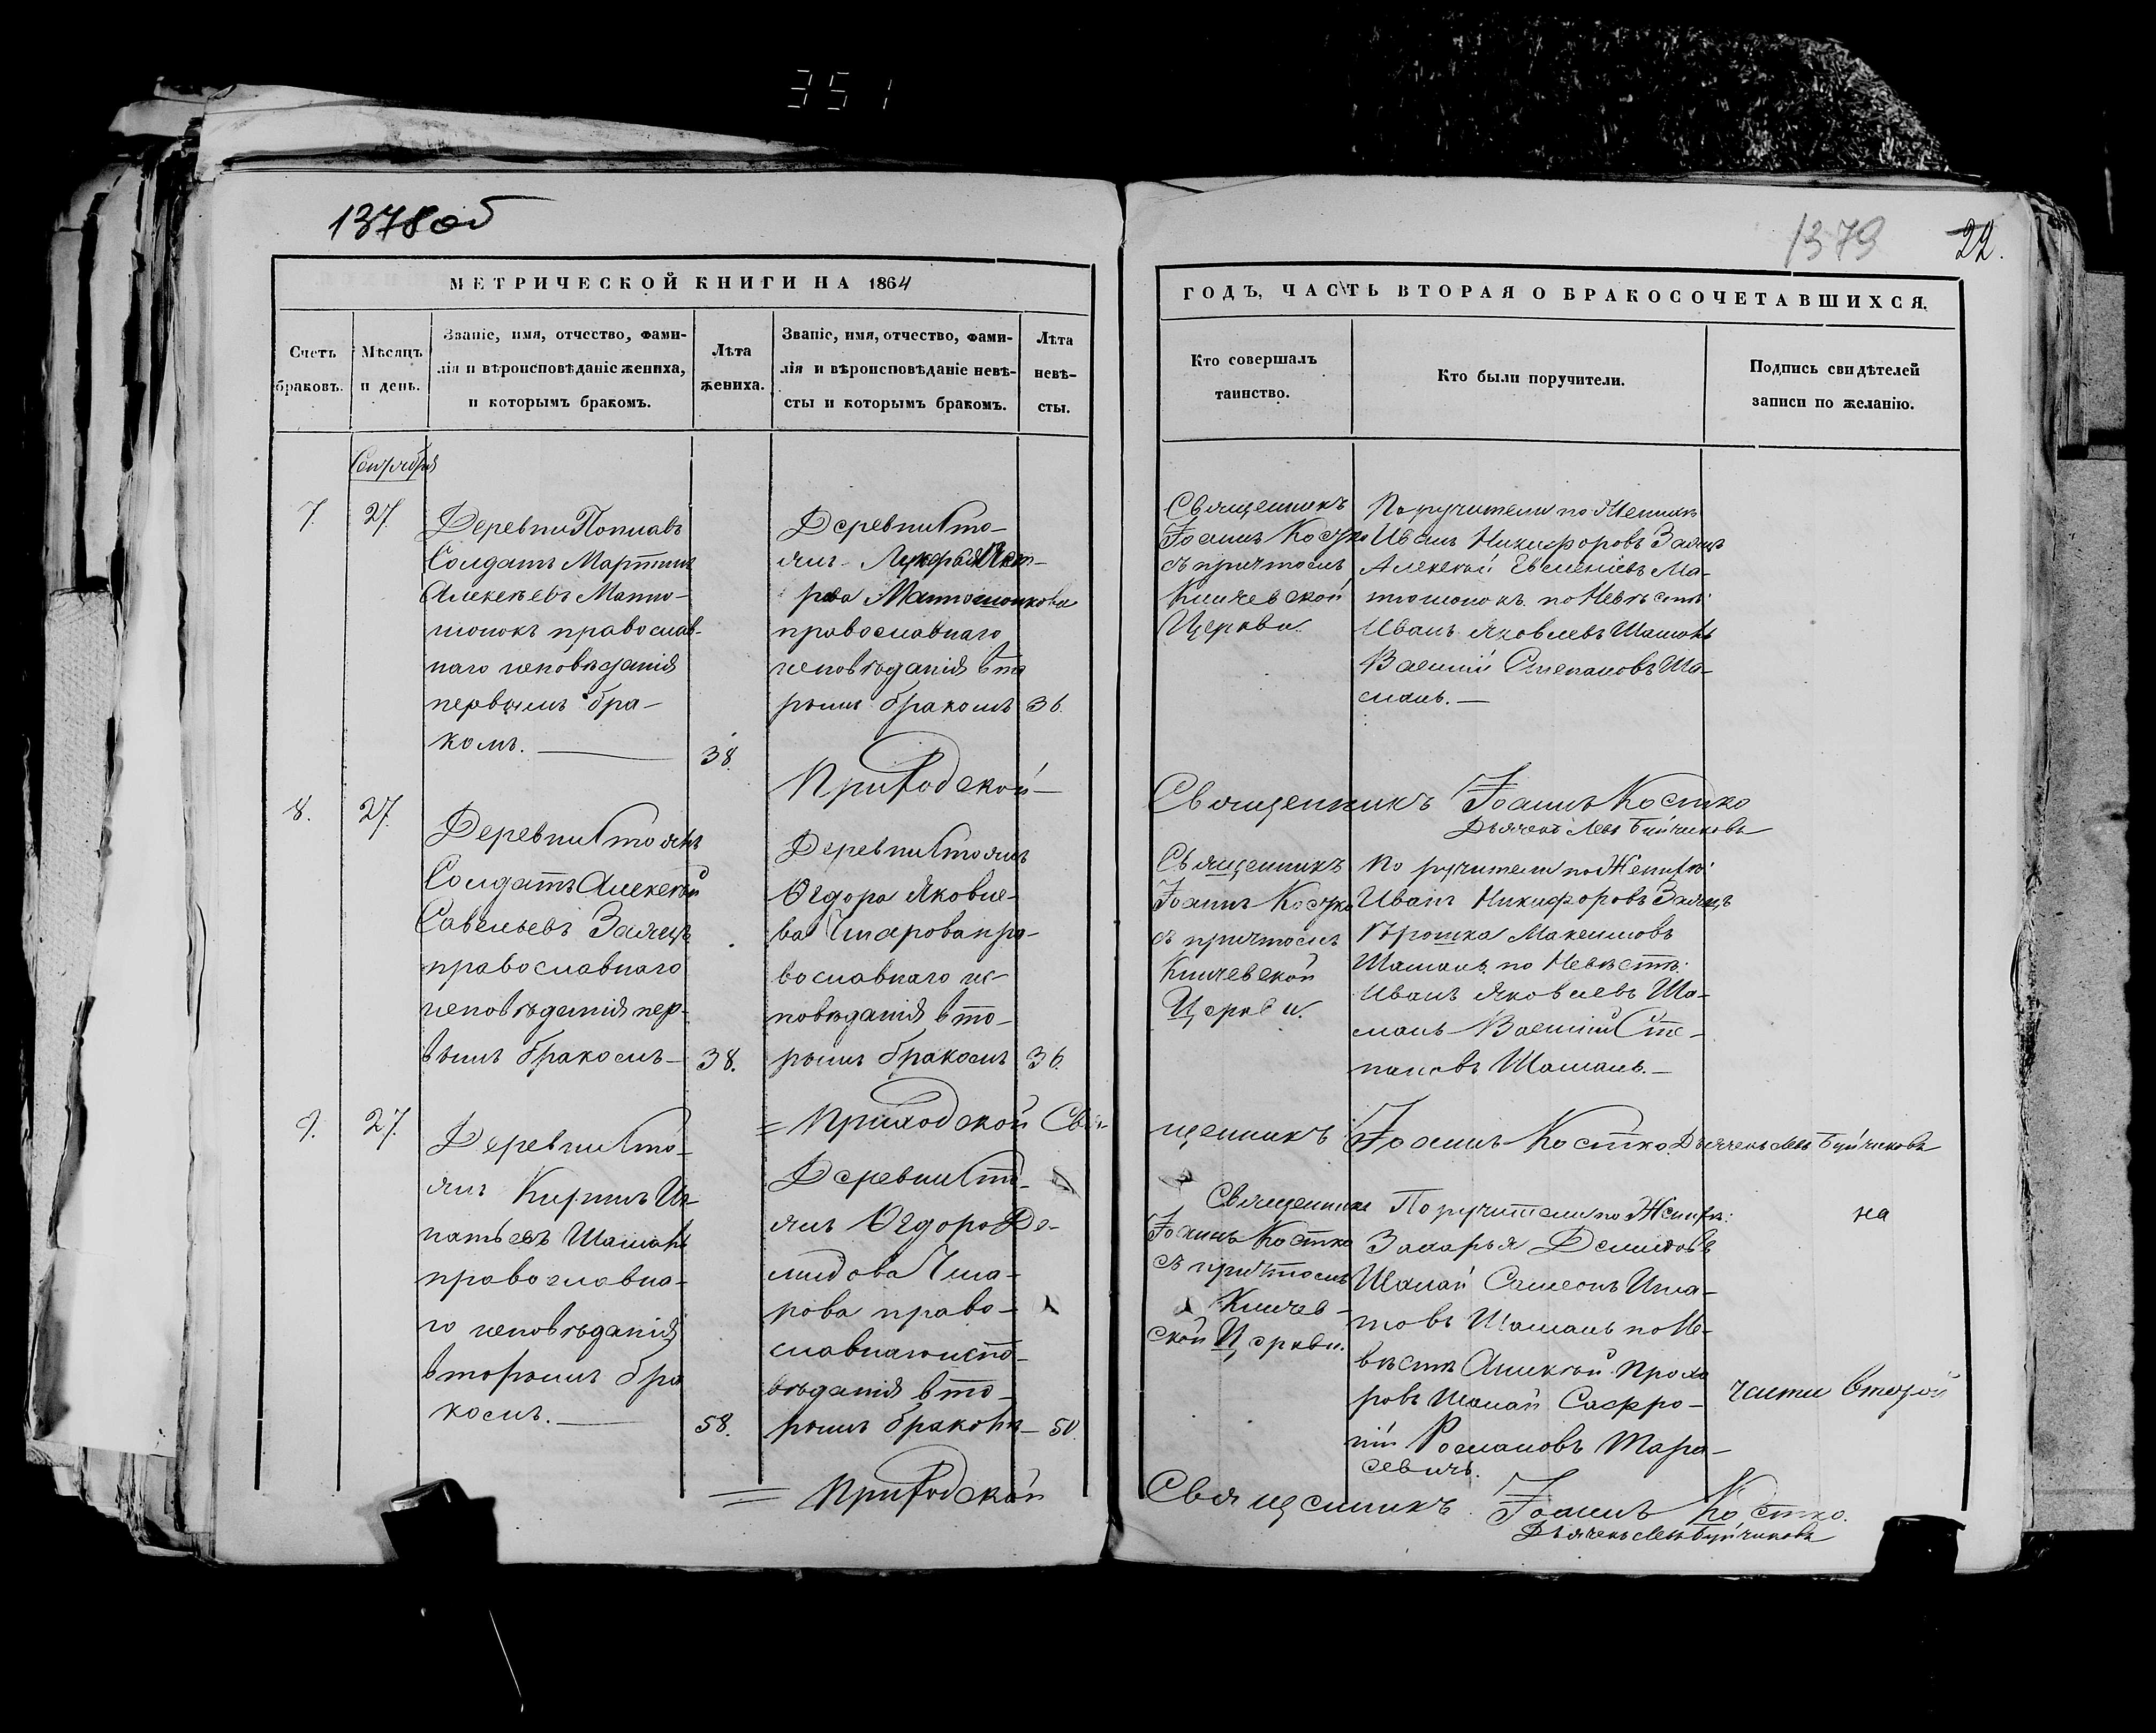 351
1378 об
1379
22.
МЕТРИЧЕСКОЙ КНИГИ НА 1864
ГОДЪ, ЧАСТЬ ВТОРАЯ О БРАКОСОЧЕТАВШИХСЯ.
Счетъ
браковъ.
Мѣсяцъ
и день.
Званіе, имя, отчество, фами-
лія и вѣроисповѣданіе жениха,
и которымъ бракомъ.
Лѣта
жениха.
Званіе, имя, отчество, фами-
лія и вѣроисповѣданіе невѣ-
сты и которымъ бракомъ.
Лѣта
невѣ-
сты.
Кто совершалъ
таинство.
Кто были поручители.
Подпись свидѣтелей
записи по желанію.
7.
27.
Деревни Поплавъ
Солдатъ Мартинъ
Алексѣевъ Матю-
шонокъ православ-
наго исповѣданія
первымъ бра-
комъ.
38.
Деревни Сто-
янъ
Матюшонкова
православнаго
исповѣданія вто
рымъ бракомъ
36.
Священникъ
Іоаннъ Костко
съ причтомъ
Кличевской
Церкви.
Поручители по Женихѣ
Иванъ Никифоровъ Заяцъ
Алексѣй Евменіевъ Ма-
тюшонокъ по Невѣстѣ:
Иванъ Яковлевъ Шаманъ
Василій Степановъ Ша-
манъ.
Приходской
Священникъ Іоаннъ Костко
Дьячекъ Левъ Буйчиковъ
8.
27.
Деревни Стоянъ
Солдатъ Алексѣй
Савельевъ Заяцъ
православнаго
исповѣданія пер-
вымъ бракомъ
38.
Деревни Стоянъ
Ѳедора Яковле-
ва пра-
вославнаго ис-
повѣданія вто-
рымъ бракомъ
36.
Священникъ
Іоаннъ Костко
съ причтомъ
Кличевской
Церкви.
Поручители по Женихѣ:
Иванъ Никифоровъ Заяцъ
Максимовъ
Шаманъ по Невѣстѣ:
Иванъ Яковлевъ Ша-
манъ Василій Сте-
пановъ Шаманъ.
Приходской Свя-
щенникъ Іоаннъ Костко Дьячекъ Левъ Буйчиковъ
9.
27.
Деревни Сто-
янъ Кирилъ Иг-
натьевъ Шаманъ
православна-
го исповѣданія
вторымъ бра
комъ.
58.
Деревни Сто-
янъ Ѳедора Де-
мидова
право-
славнаго испо-
вѣданія вто-
рымъ бракомъ
50.
Священникъ
Іоаннъ Костко
съ причтомъ
Кличев-
ской Церкви.
Поручители по Женихѣ:
Захарья Демидовъ
Шаман Самсонъ Игна-
товъ Шаманъ по Не-
вѣстѣ Алексѣй Прохо
ровъ Шаман Софро-
ній Романовъ Тара-
севичъ.
на
части второй
Приходской
Священникъ Іоаннъ Костко.
Дьячекъ Левъ Буйчиковъ